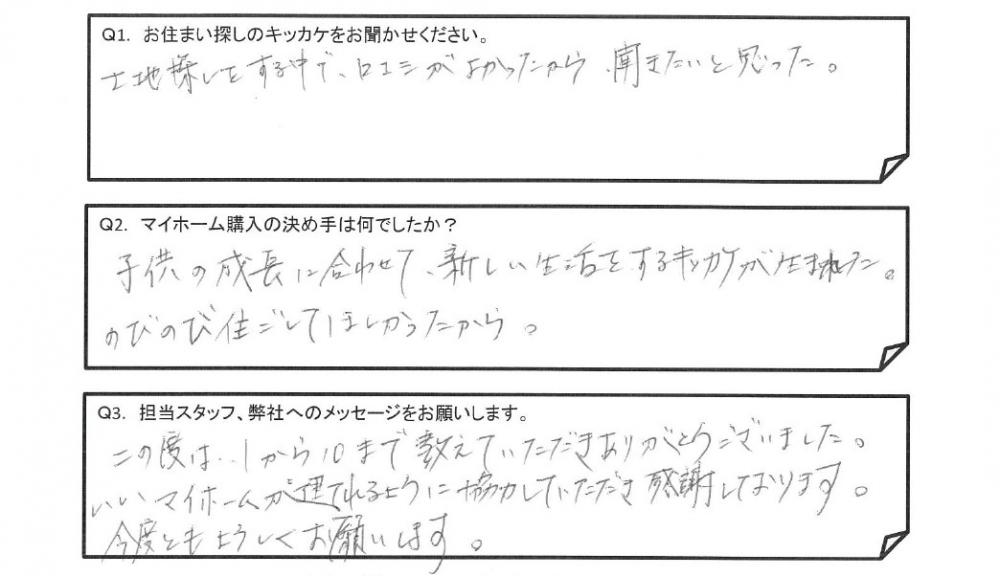 Q1. お住まい探しのキッカケをお聞かせください。
土地探しをする中で、口コミがよかったから、聞きたいと思った。
Q2. マイホーム購入の決め手は何でしたか？
子供の成長に合わせて、新しい生活をするキッカケが生まれた。
のびのび住ごしてほしかったから。
Q3. 担当スタッフ、弊社へのメッセージをお願いします。
この度は、1から10まで教えていただきありがとうございました。
いいマイホームが建てれるように協力していただき感謝しております。
今度ともよろしくお願いします。